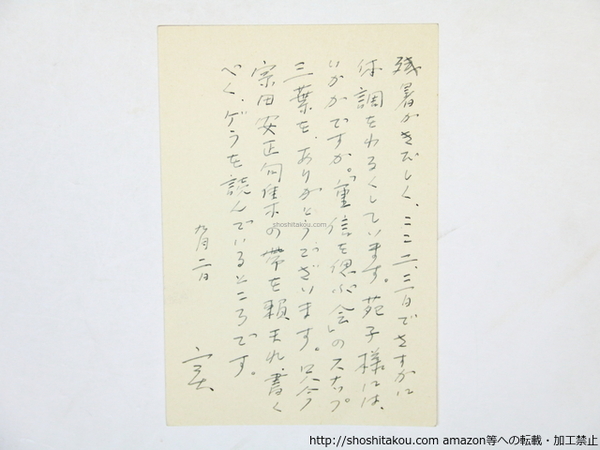 残暑がきびしく、ここ二、三日でさすがに
体調をわるくしています。苑子様には、
いかがですか。「重信を偲ぶ会」のスナップ
三葉を、ありがとうございます。只今
宗田安正句集の帯を頼まれ、書く
べく、ゲラを読んでいるところです。
九月二日
shoshitakou.com
http://shoshitakou.com amazon等への転載・加工禁止